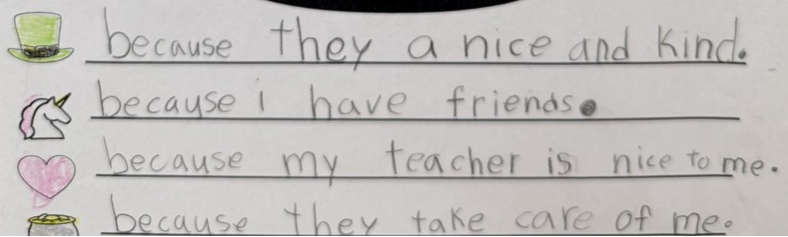 because they a nice and kind.
because i have friends.
because my teacher is nice to me.
because they take care of me.